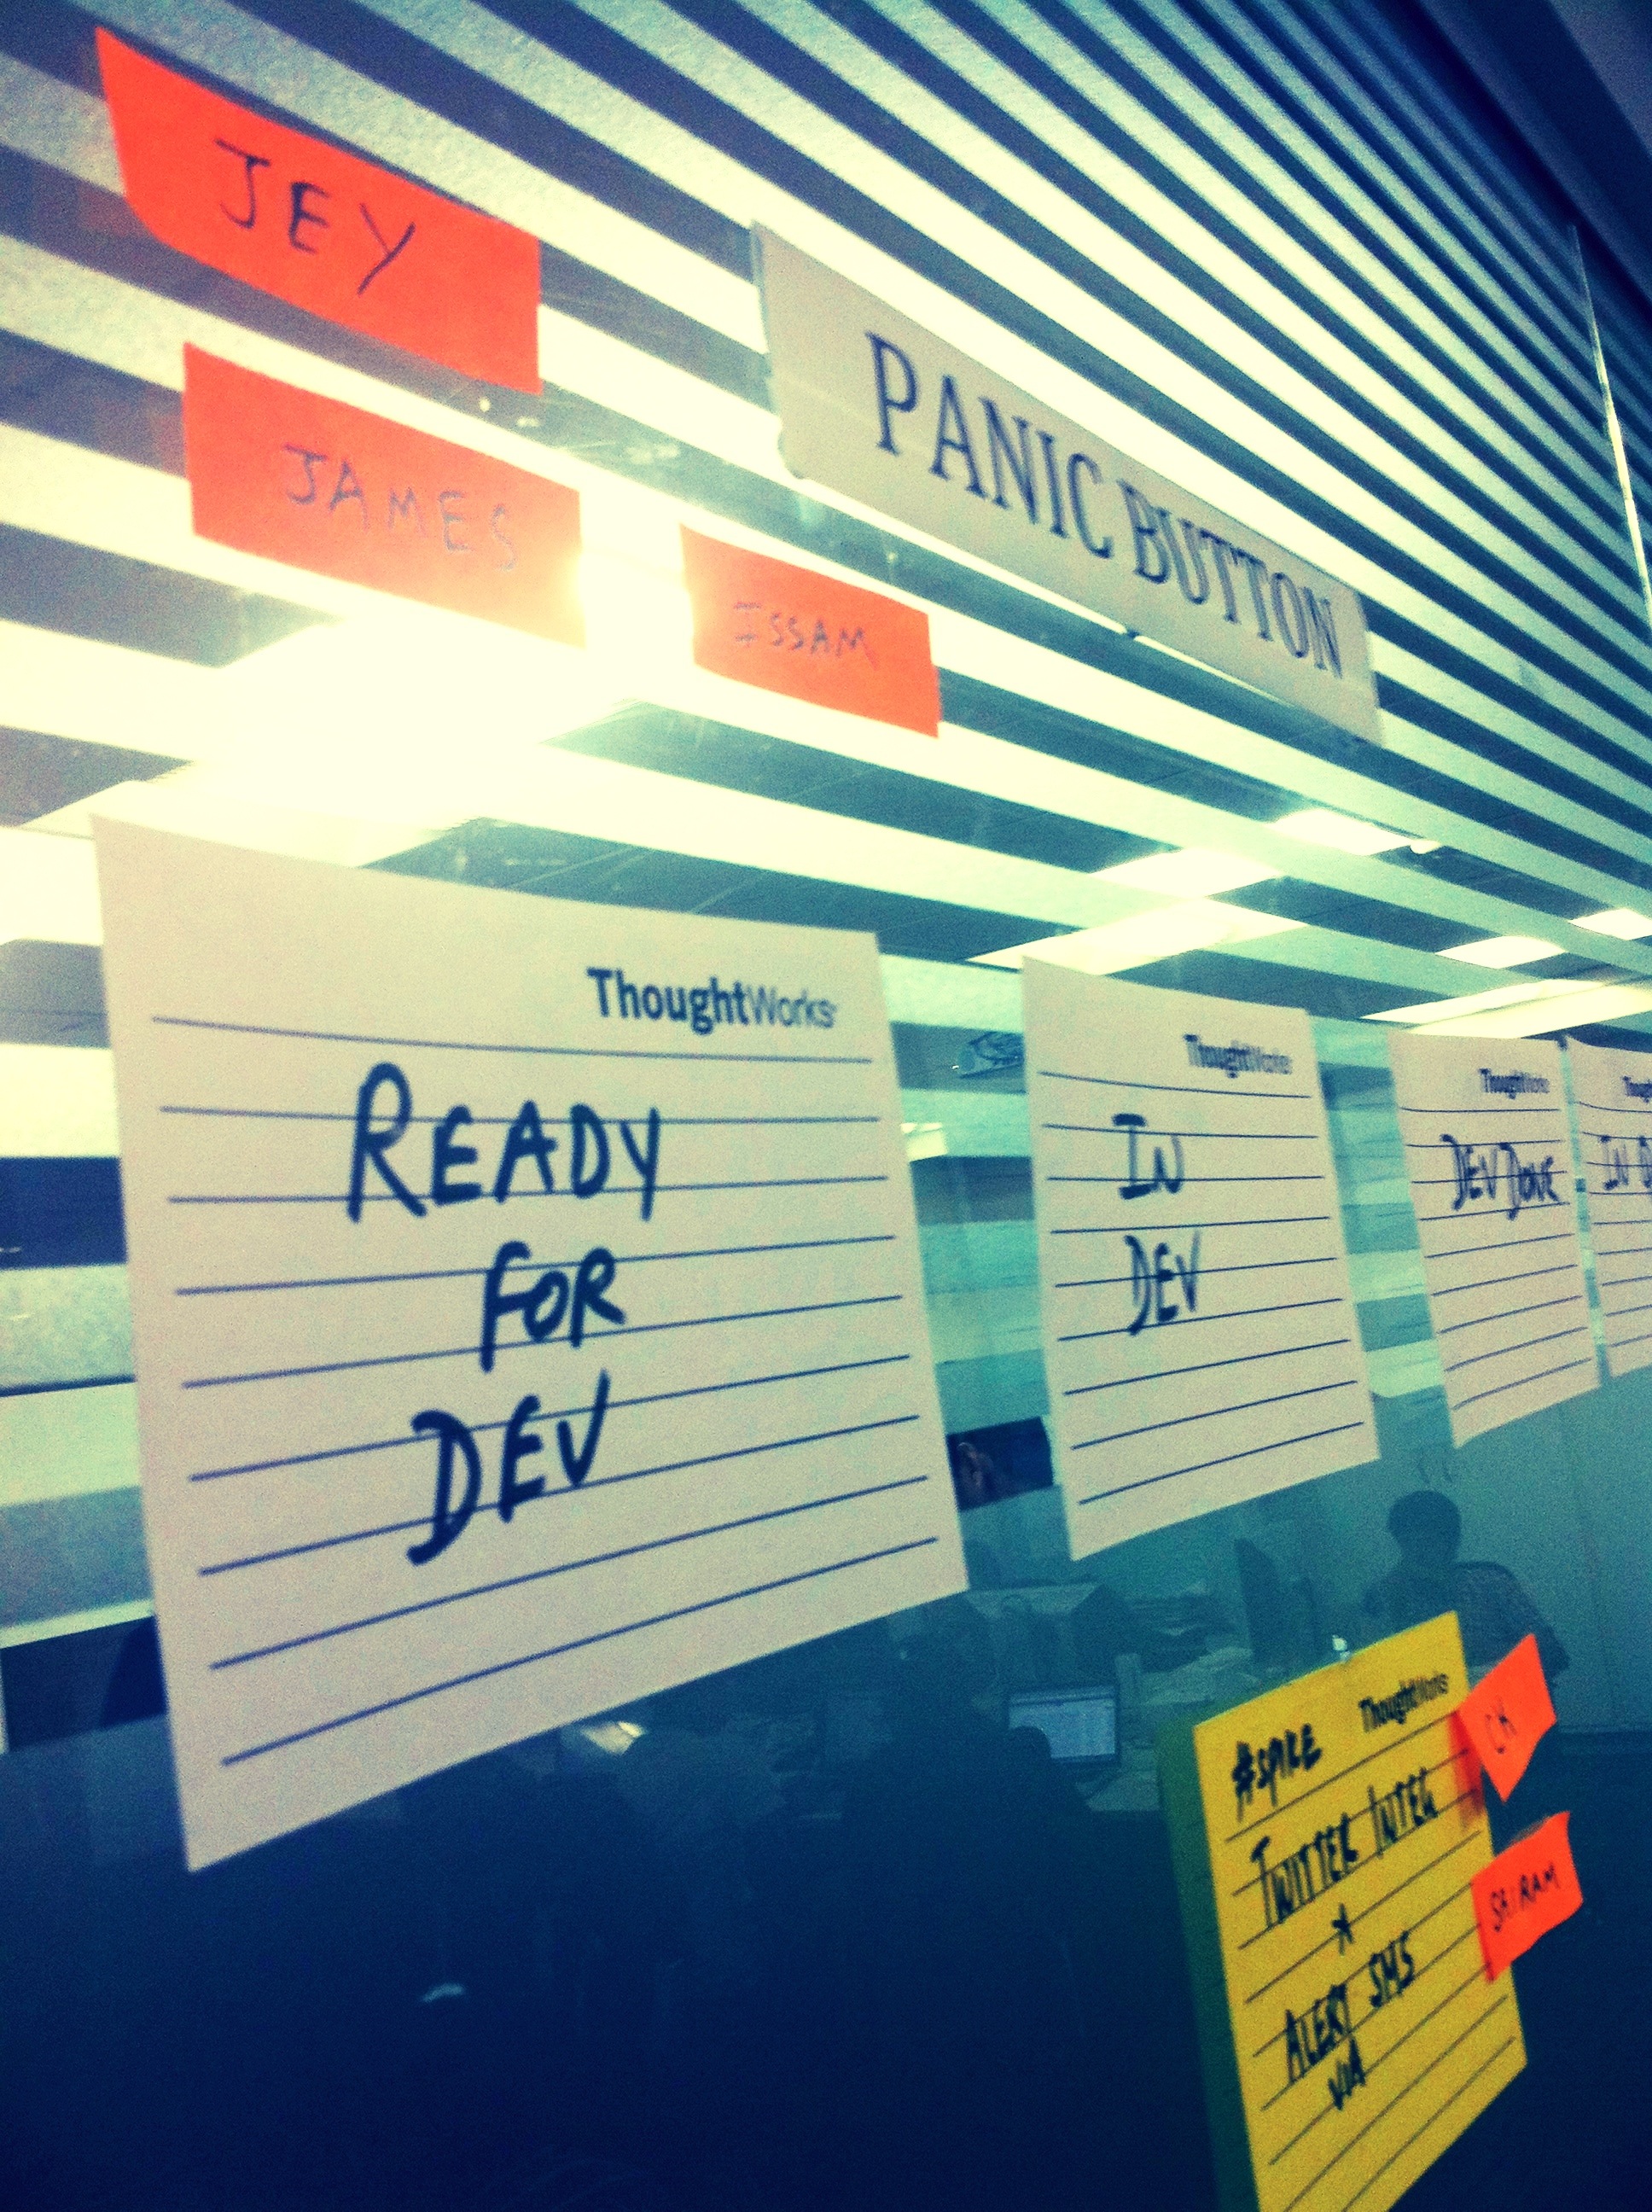 JEY
JAMES
ISSAM
PANIC BUTTON
ThoughtWorks
READY
FOR
DEV
ThoughtWorks
IN
DEV
ThoughtWorks
DEV DONE
IN
ThoughtWorks
#SPIKE
TWITTER INTEG
*
ALERT SMS
VIA
CK
SAIRAM